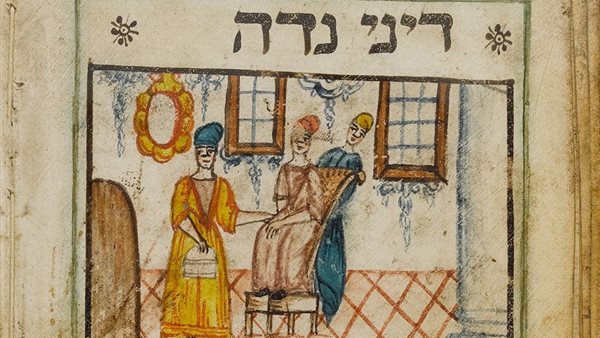 דיני נדה